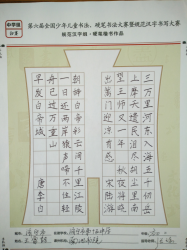 第六届全国少年儿童书法、硬笔书法大赛暨规范汉字书写大赛
规范汉字组·硬笔楷书作品
中学组
三万里河东入海五千仞岳
上摩天遗民泪尽胡尘里南
望王师又一年 秋夜将晓
出篱门迎凉有感 宋陆游
朝辞白帝彩云间千里江陵
一日还两岸猿声啼不住轻
舟已过万重山
早发白帝城 唐李白